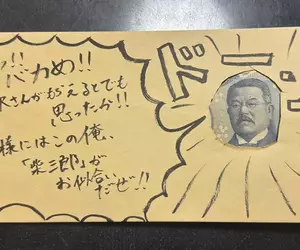 !!
バカめ!!
沢さんがもらえるとでも
思ったか!!
様にはこの俺、
「柴三郎」が
お似合いだぜ!!
ドーン